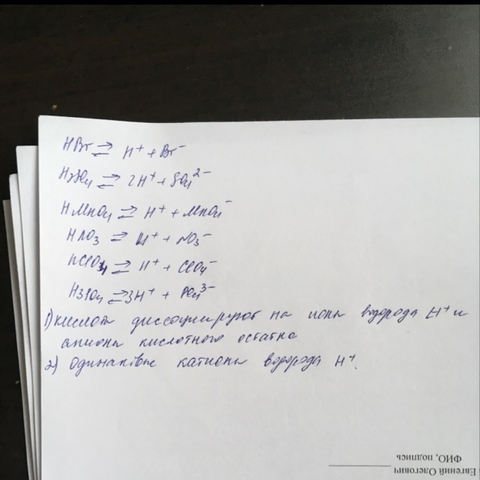 HBr ⇄ H⁺ + Br⁻
H₂SO₄ ⇄ 2H⁺ + SO₄²⁻
HMnO₄ ⇄ H⁺ + MnO₄⁻
HNO₃ ⇄ H⁺ + NO₃⁻
HClO₄ ⇄ H⁺ + ClO₄⁻
H₃PO₄ ⇄ 3H⁺ + PO₄³⁻
1) кислоты диссоциируют на ионы водорода H⁺ и
анионы кислотного остатка
2) одинаковые катионы водорода H⁺.
ФИО, подпись
Евгений Олегович